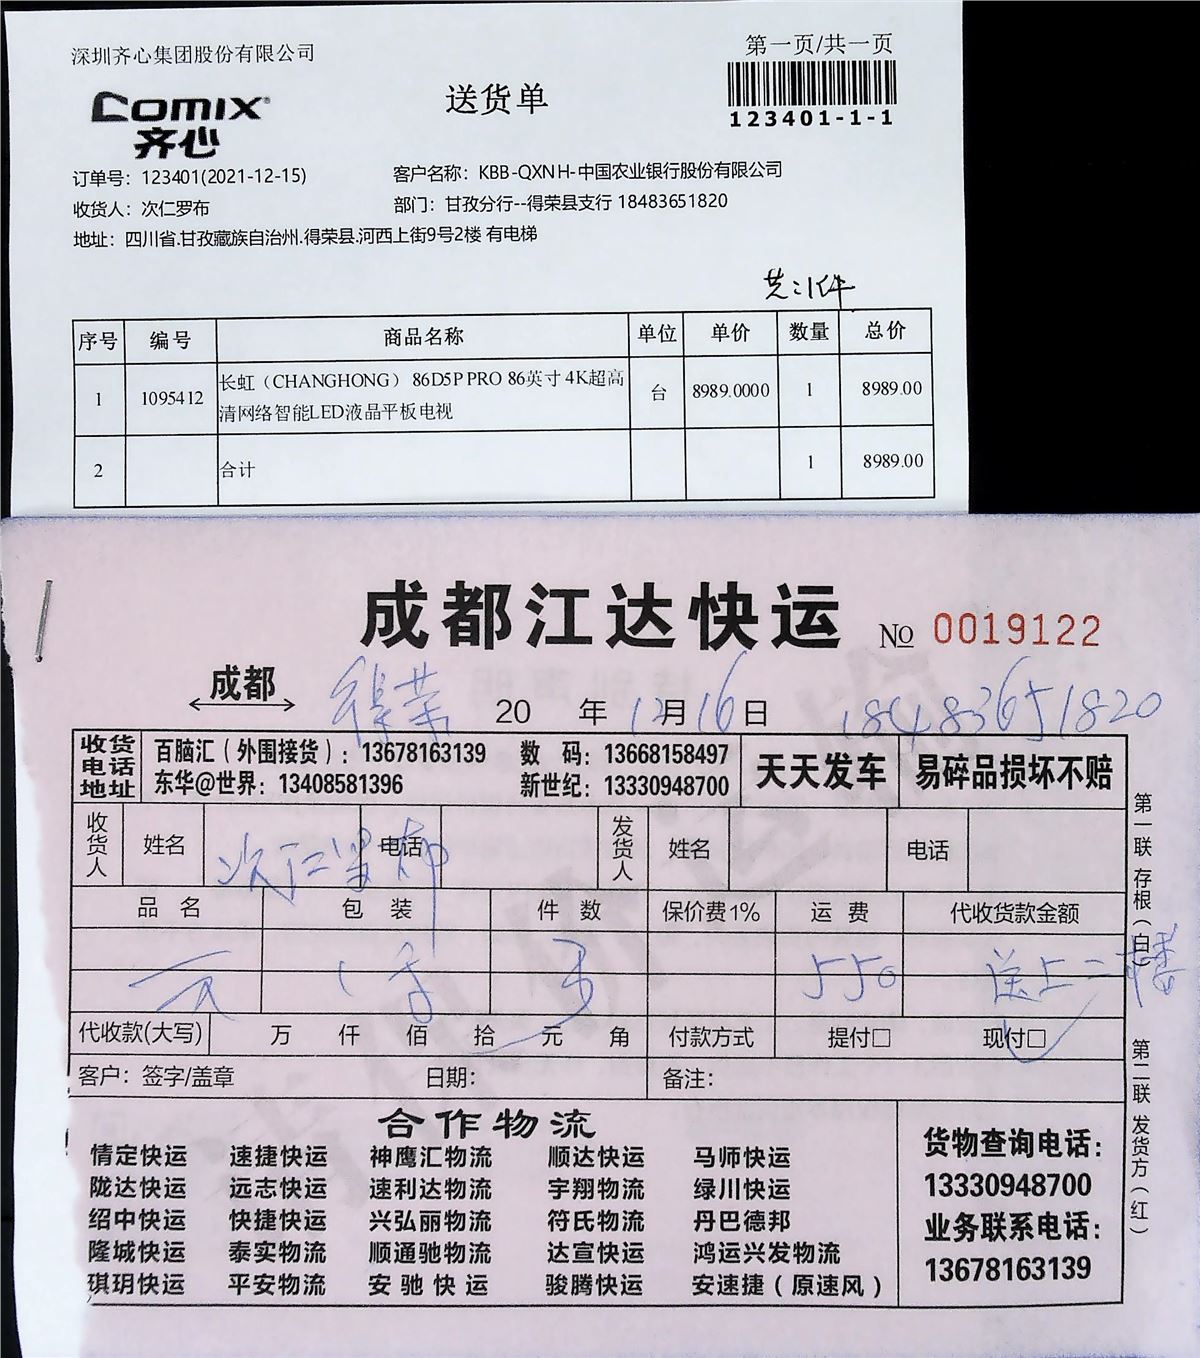 深圳齐心集团股份有限公司
第一页/共一页
COMIX
齐心
送货单
123401-1-1
订单号：123401(2021-12-15)
客户名称：KBB-QXNH-中国农业银行股份有限公司
收货人：次仁罗布
部门：甘孜分行--得荣县支行 18483651820
地址：四川省.甘孜藏族自治州.得荣县.河西上街9号2楼 有电梯
序号 编号 商品名称 单位 单价 数量 总价
1 1095412 长虹（CHANGHONG） 86D5P PRO 86英寸 4K超高清网络智能LED液晶平板电视 台 8989.0000 1 8989.00
2 合计 1 8989.00
成都江达快运 No 0019122
成都 得荣 20 年 12月16日 18483651820
收货电话地址 百脑汇（外围接货）：13678163139 数 码：13668158497 天天发车 易碎品损坏不赔
东华@世界：13408581396 新世纪：13330948700
收货人 姓名 次仁罗布 电话 发货人 姓名 电话
品 名 包 装 件 数 保价费1% 运 费 代收货款金额
550 送上二楼
代收款(大写) 万 仟 佰 拾 元 角 付款方式 提付□ 现付□
客户：签字/盖章 日期： 备注：
第一联 存根（白） 第二联 发货方（红）
合作物流
情定快运 速捷快运 神鹰汇物流 顺达快运 马师快运
陇达快运 远志快运 速利达物流 宇翔物流 绿川快运
绍中快运 快捷快运 兴弘丽物流 符氏物流 丹巴德邦
隆城快运 泰实物流 顺通驰物流 达宣快运 鸿运兴发物流
琪玥快运 平安物流 安驰快运 骏腾快运 安速捷（原速风）
货物查询电话：
13330948700
业务联系电话：
13678163139